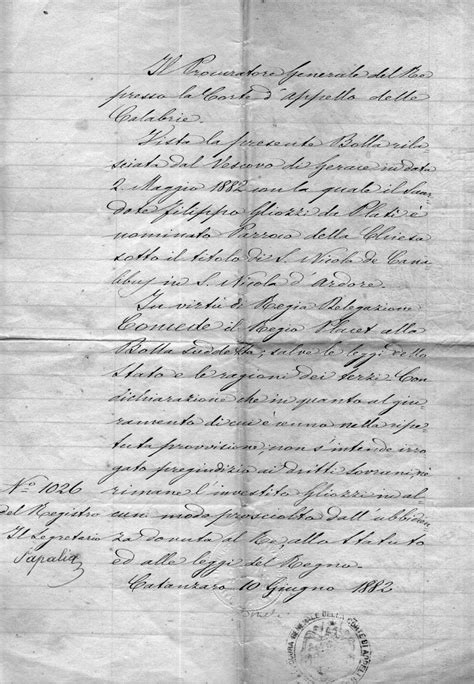 Il Procuratore Generale del Re
presso la Corte d'Appello delle
Calabrie.
Vista la presente Bolla rila
sciata dal Vescovo di Gerace in data
2. Maggio 1882 con la quale il Sacer
dote Filippo Gliozzi da Platì è
nominato Parroco della Chiesa
sotto il titolo di S. Nicola de Cana
in S. Nicola d'Ardore.
In virtù di Regia Delegazione
Concede il Regio Placet alla
Bolla suddetta, salve le leggi dello
Stato e le ragioni dei terzi. Con
dichiarazione che in quanto al giu
ramento di cui è cenno nella ripe
tuta provvisione, non s'intende irro
gato pregiudizio ai dritti Sovrani, nè
rimane l'investito Gliozzi in al
cun modo prosciolto dall'ubbidien
za dovuta al Re, allo Statuto
ed alle leggi del Regno.
Catanzaro 10 Giugno 1882
N.º 1026
del Registro
Il Segretario
Sapalia
GENERALE DELLA CORTE D'APPELLO